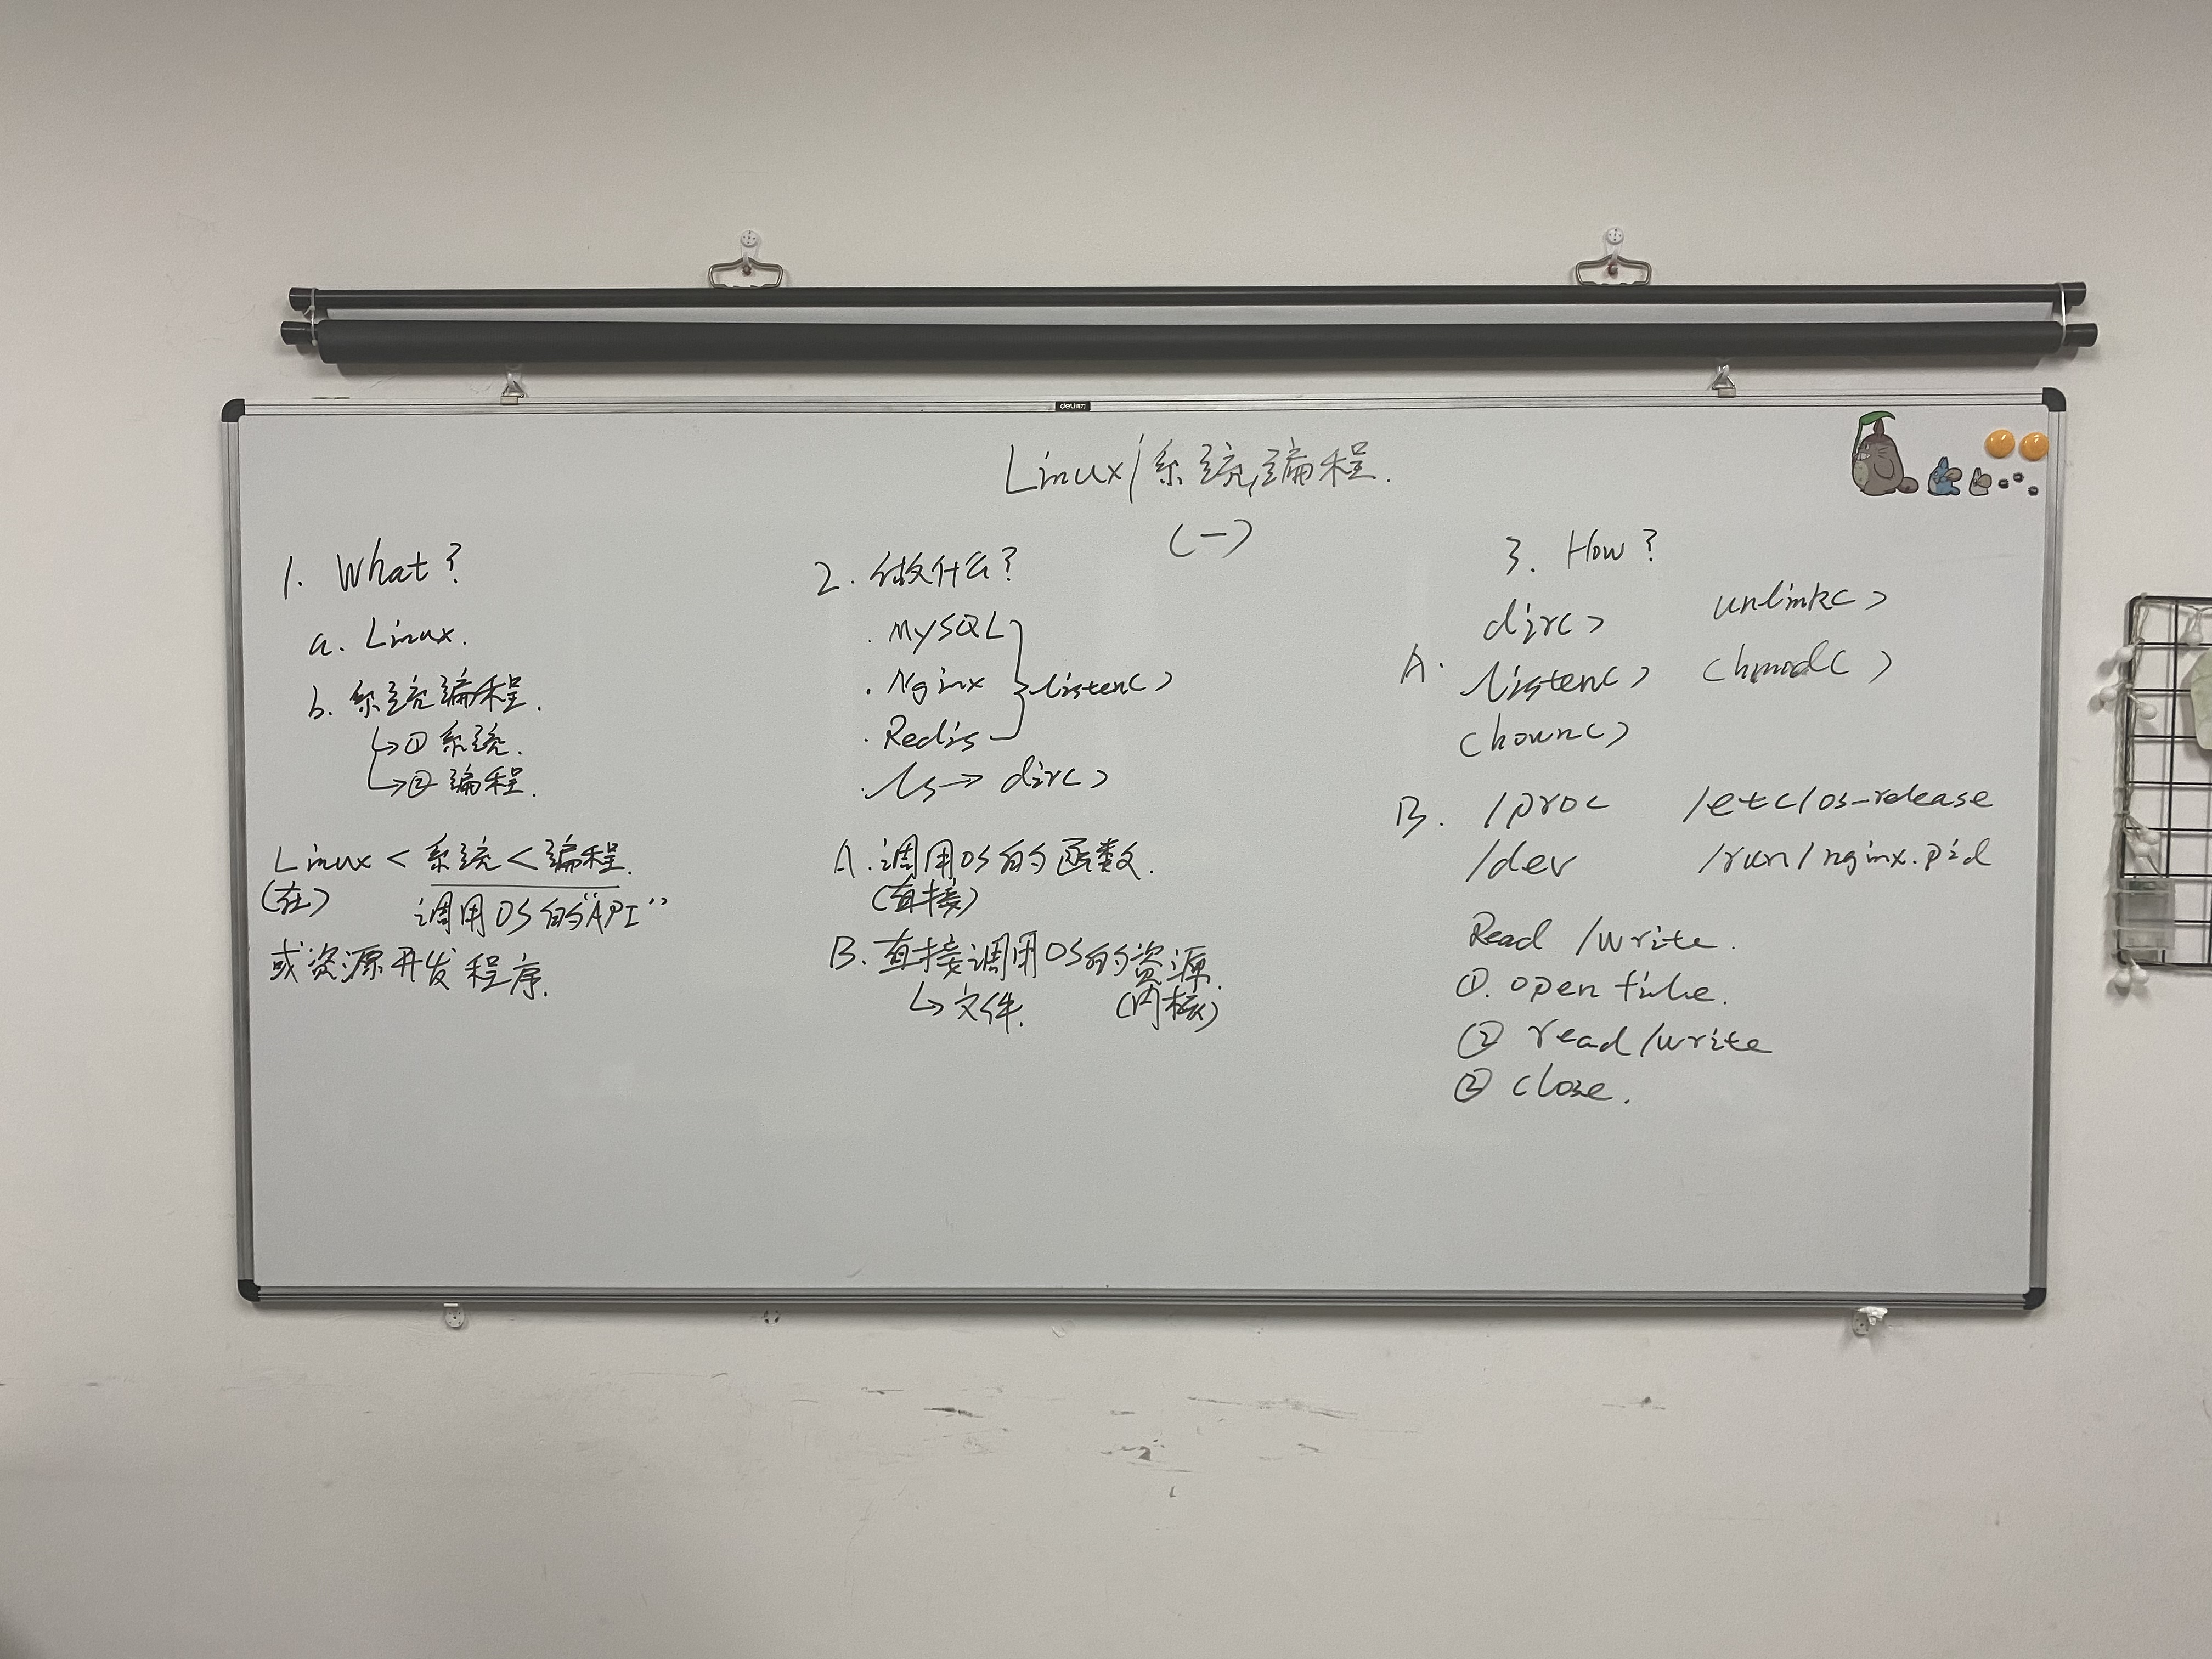 deli得力
Linux/系统编程.
(一)
1. What?
a. Linux.
b. 系统编程.
↳① 系统.
↳② 编程.
Linux < 系统 < 编程.
(在)
调用OS的"API"
或资源开发程序.
2. 做什么?
· MySQL
· Nginx } listen()
· Redis
· ls → dir()
A. 调用OS的函数.
(直接)
B. 直接调用OS的资源.
↳ 文件. (内核)
3. How?
dir() unlink()
A. listen() chmod()
chown()
B. /proc /etc/os-release
/dev /run/nginx.pid
Read /write.
①. open file.
② read/write
② close.